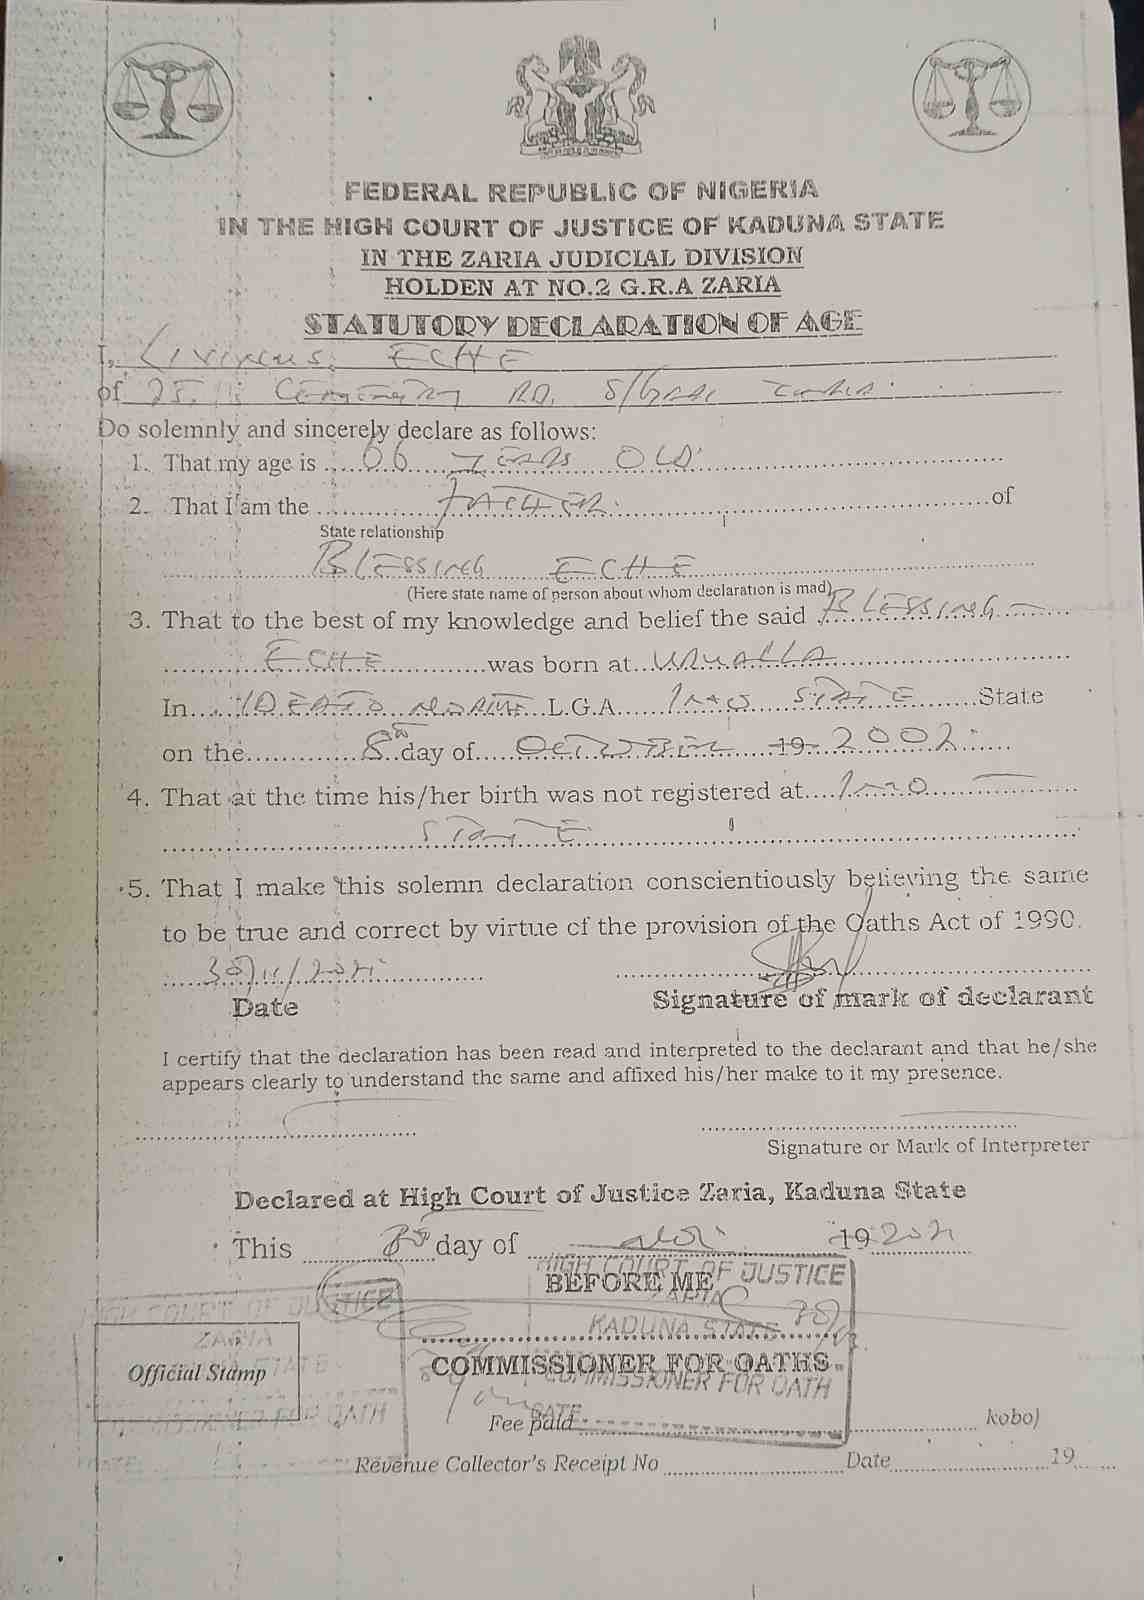 FEDERAL REPUBLIC OF NIGERIA
IN THE HIGH COURT OF JUSTICE OF KADUNA STATE
IN THE ZARIA JUDICIAL DIVISION
HOLDEN AT NO.2 G.R.A ZARIA
STATUTORY DECLARATION OF AGE
I, Livinus ECHE
of 25 RD. S/Gari Zaria
Do solemnly and sincerely declare as follows:
1. That my age is YEARS OLD
2. That I am the FATHER of
State relationship
BLESSING ECHE
(Here state name of person about whom declaration is mad)
3. That to the best of my knowledge and belief the said BLESSING
ECHE was born at URUALLA
In IDEATO NORTH L.G.A IMO STATE State
on the 8th day of OCTOBER 19 2002
4. That at the time his/her birth was not registered at IMO
STATE
5. That I make this solemn declaration conscientiously believing the same
to be true and correct by virtue of the provision of the Oaths Act of 1990.
30/11/2021
Date
Signature of mark of declarant
I certify that the declaration has been read and interpreted to the declarant and that he/she
appears clearly to understand the same and affixed his/her make to it my presence.
Signature or Mark of Interpreter
Declared at High Court of Justice Zaria, Kaduna State
This day of Nov 19 2021
HIGH COURT OF JUSTICE
BEFORE ME
ZARIA
KADUNA STATE
COMMISSIONER FOR OATHS
COMMISSIONER FOR OATH
DATE
HIGH COURT OF JUSTICE
ZARIA
Official Stamp
Fee paid kobo)
Revenue Collector's Receipt No Date 19